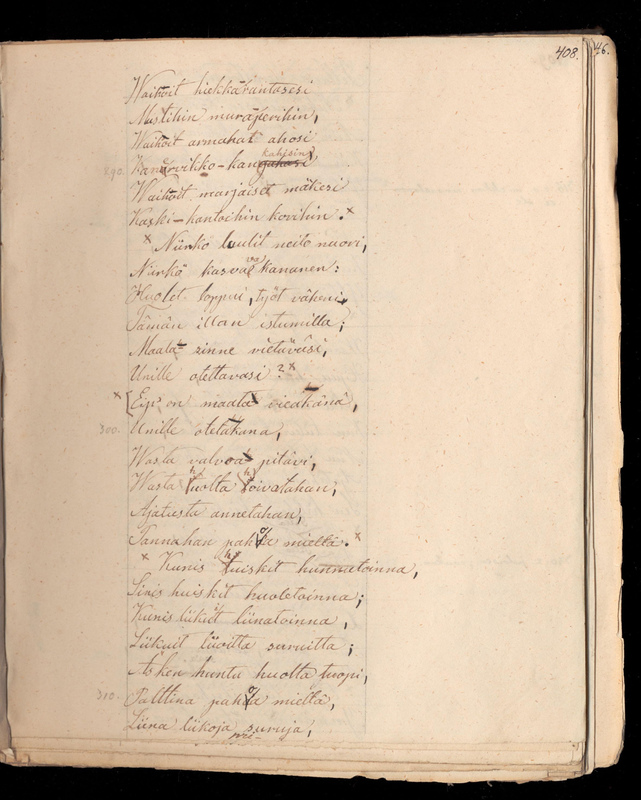 408. 46.
Waihoit hiekkarantasesi
Mustihin muraperihin,
Waihoit armahat ahosi
290. Kanarvikko-kangahasi kahisin
Waihoit marjaiset mäkesi
Kaski-kantoihin kovihin.
Niinkö luulit neito nuori,
Niinkö kasvava kananen:
Huolet loppui, työt väheni
Tämän illan istumilla;
Maata sinne vietäväsi,
Unille otettavasi?
Eip' on maata vieäkänä,
300. Unille otetakana,
Wasta valvoa pitävi,
Wasta huolta hoivatahan,
Ajatusta annetahan,
Pannahan pahoa mieltä.
Kunis huiskit hunnatoinna,
Sinis huiskit huoletoinna;
Kunis liikuit liinatoinna,
Liikuit liioitta suruitta;
Asken huntu huolta tuopi,
310. Palttina pahoa mieltä,
Liina liikoja suruja,